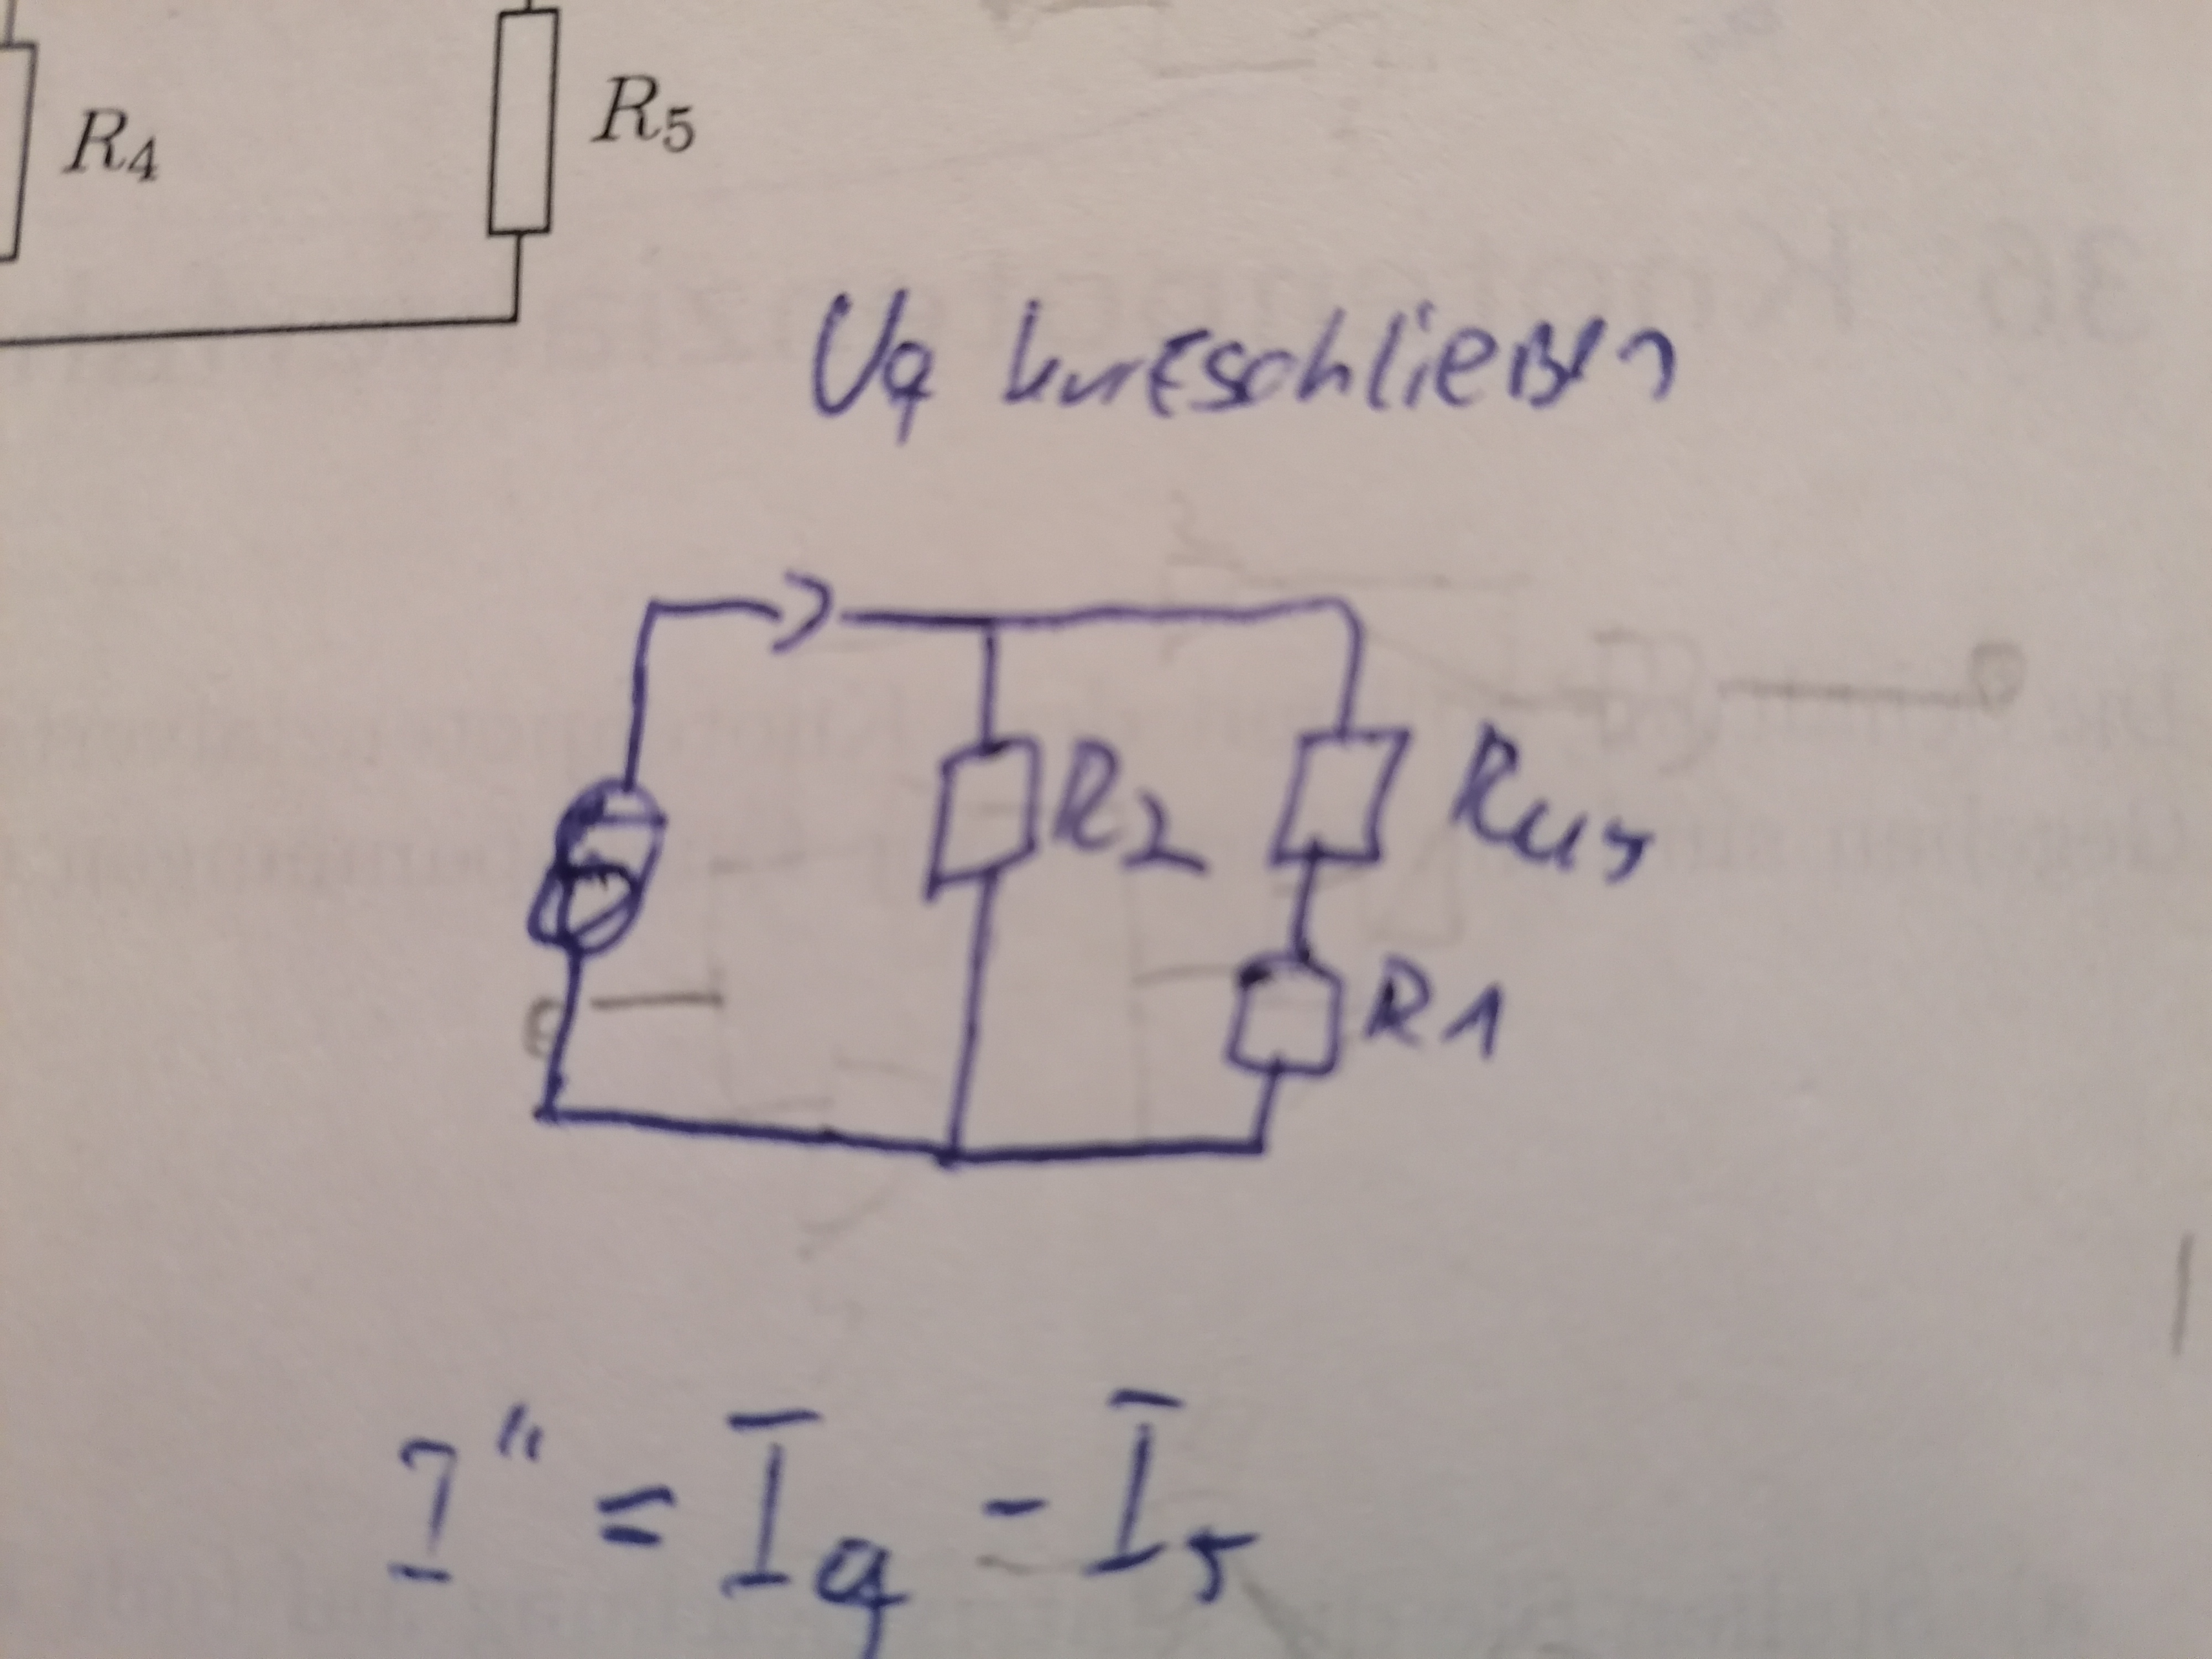 R4
R5
Uq kurzschließen
R2
R45
R1
I" = Iq - I5